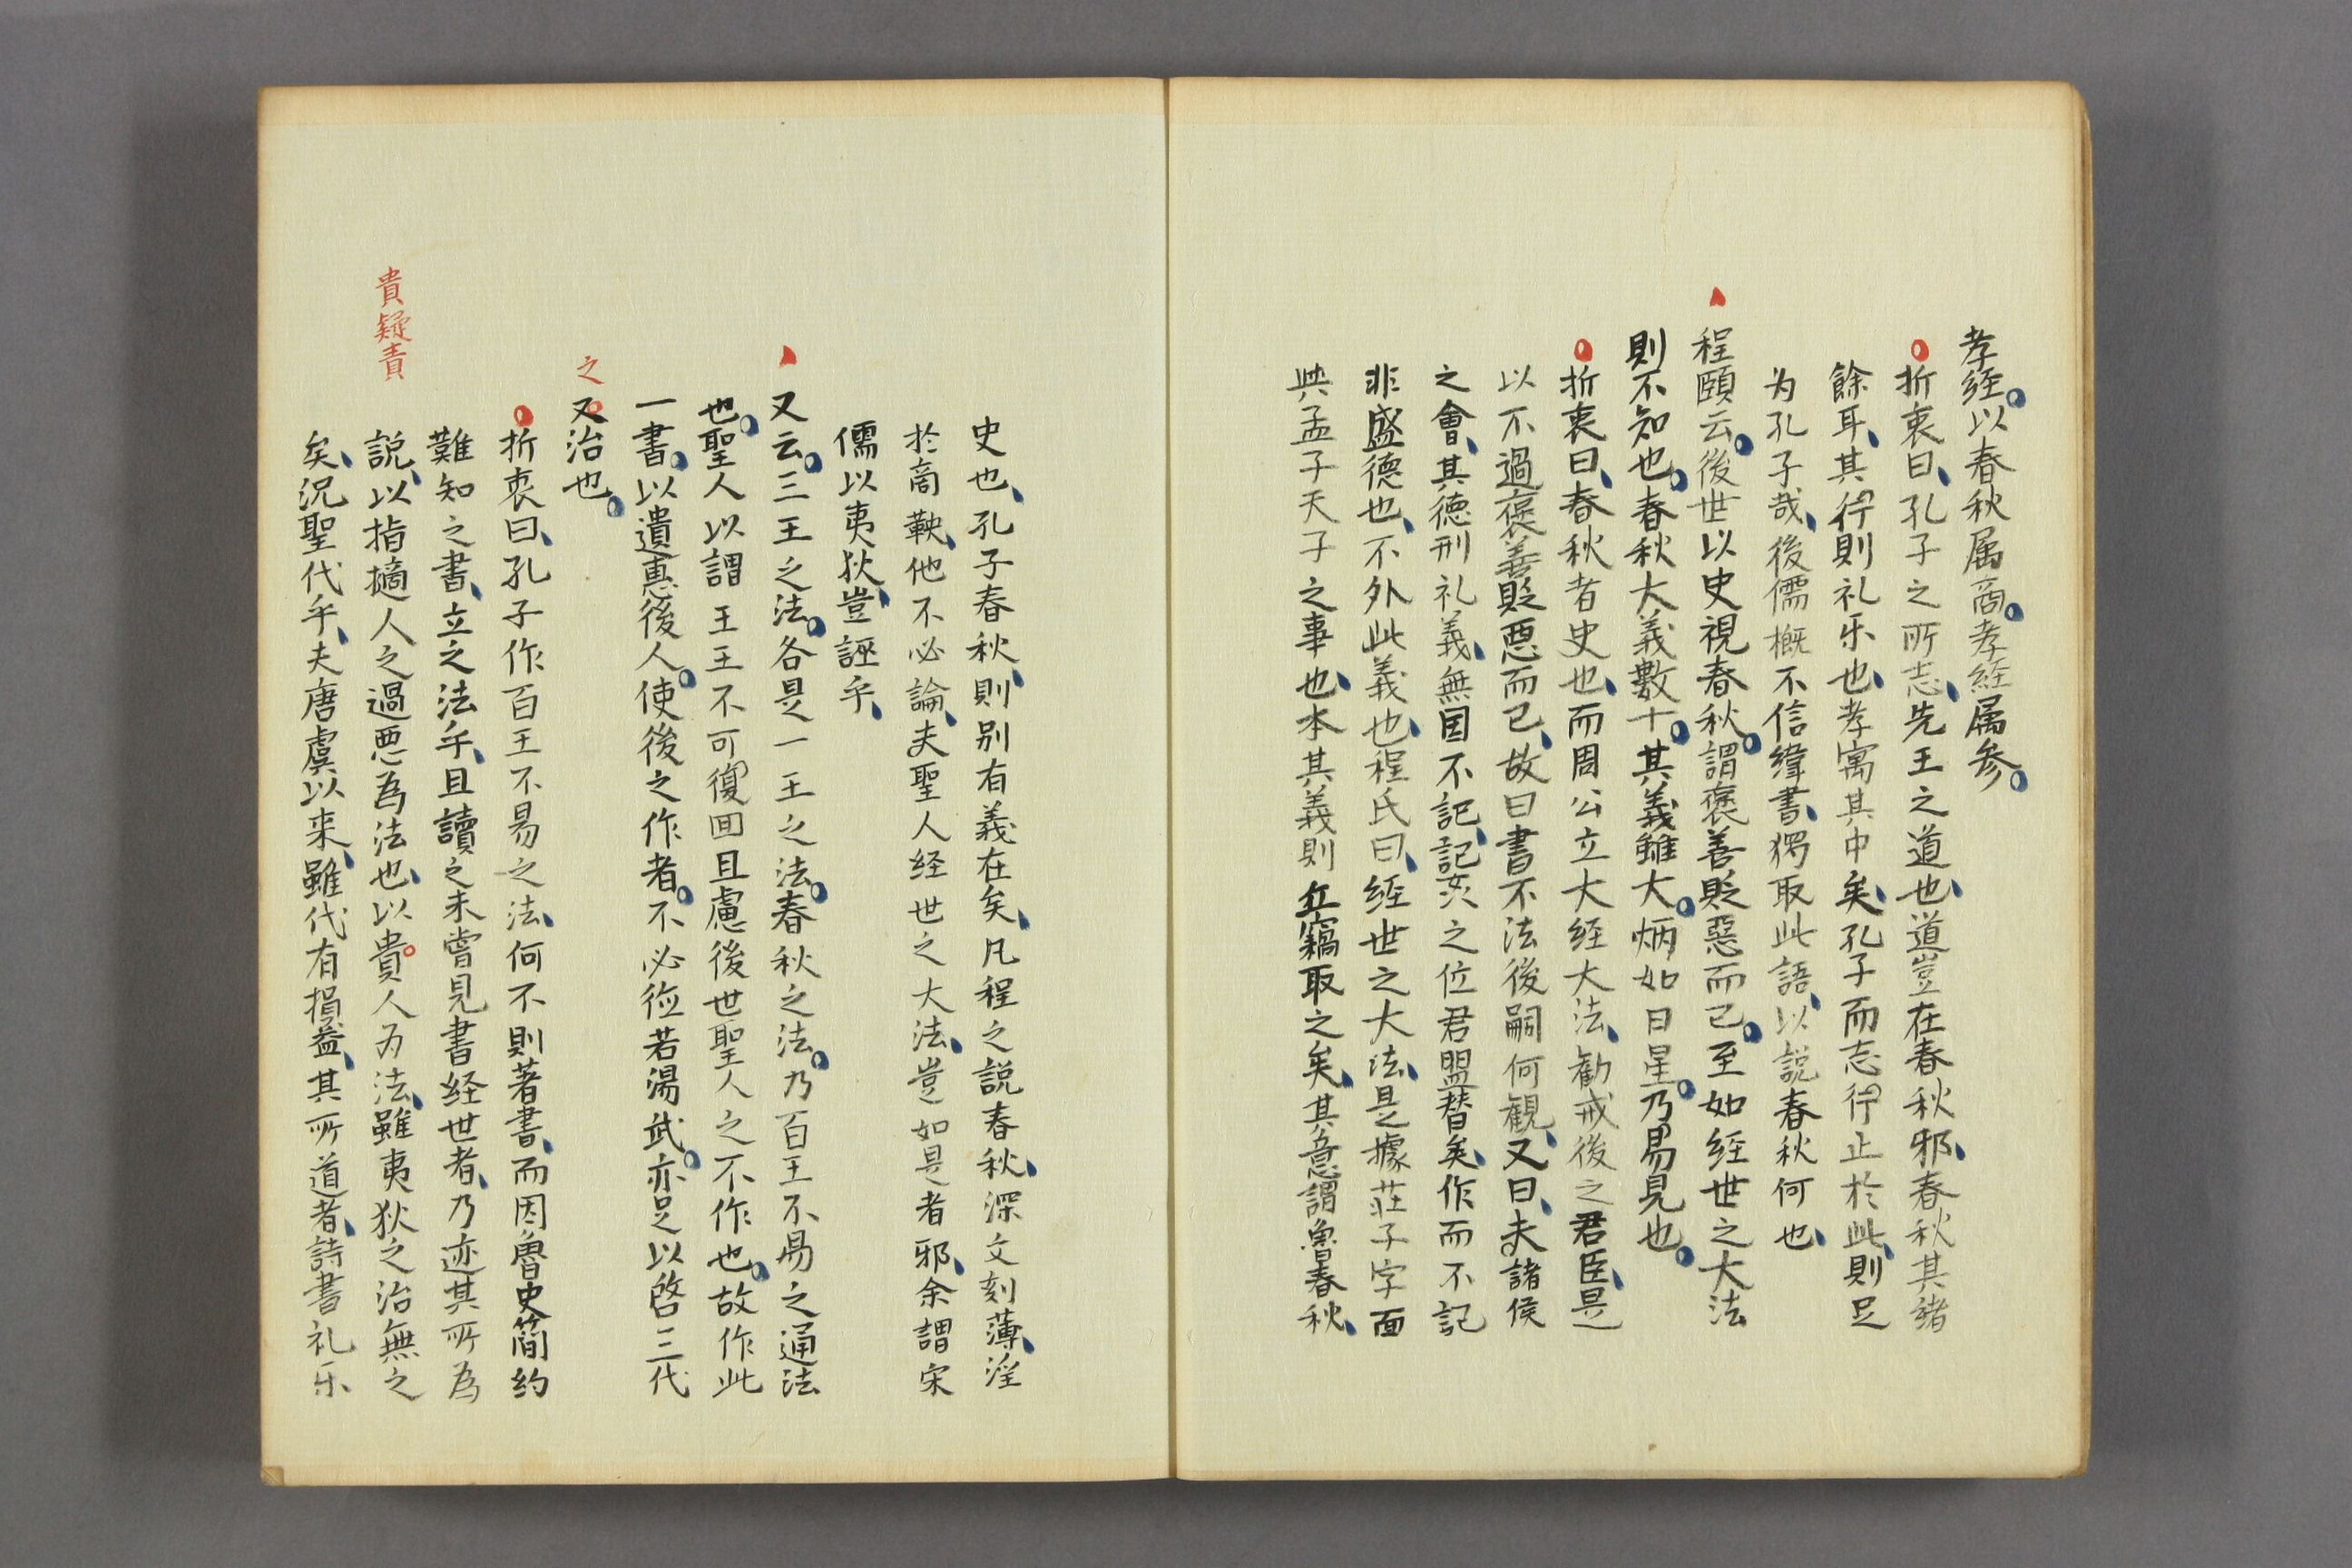 孝経。以春秋属商。孝経属参。
折衷曰、孔子之所志、先王之道也、道豈在春秋邪、春秋其緒
餘耳、其行則礼乐也、孝寓其中矣、孔子而志行止於此、則足
为孔子哉、後儒概不信緯書、獨取此語、以説春秋何也、
程頤云。後世以史視春秋。謂褒善貶惡而已。至如経世之大法
則不知也。春秋大義數十。其義雖大。炳如日星。乃易見也。
折衷曰、春秋者史也、而周公立大経大法、勧戒後之君臣、是
以不過褒善貶悪而已、故曰書不法後嗣何観、又曰、夫諸侯
之會、其徳刑礼義、無国不記、記姦之位君盟替矣、作而不記
非盛德也、不外此義也、程氏曰、経世之大法、是據荘子字面
與孟子天子之事也、本其義則丘竊取之矣、其意謂魯春秋、
史也、孔子春秋、則别有義在矣、凡程之説春秋、深文刻薄、淫
於商鞅、他不必論、夫聖人経世之大法、豈如是者邪、余謂宋
儒以夷狄、豈誣乎、
又云。三王之法。各是一王之法。春秋之法。乃百王不易之通法
也。聖人以謂王王不可復回且慮後世聖人之不作也。故作此
一書。以遺惠後人。使後之作者。不必徳若湯武。亦足以啓三代
之
又治也。
折衷曰、孔子作百王不易之法、何不則著書、而因魯史簡約
難知之書、立之法乎、且讀之未嘗見書経世者、乃迹其所為
説、以指摘人之過悪為法也、以貴人为法、雖夷狄之治無之
貴疑責
矣、況聖代乎、夫唐虞以来、雖代有損益、其所道者、詩書礼乐